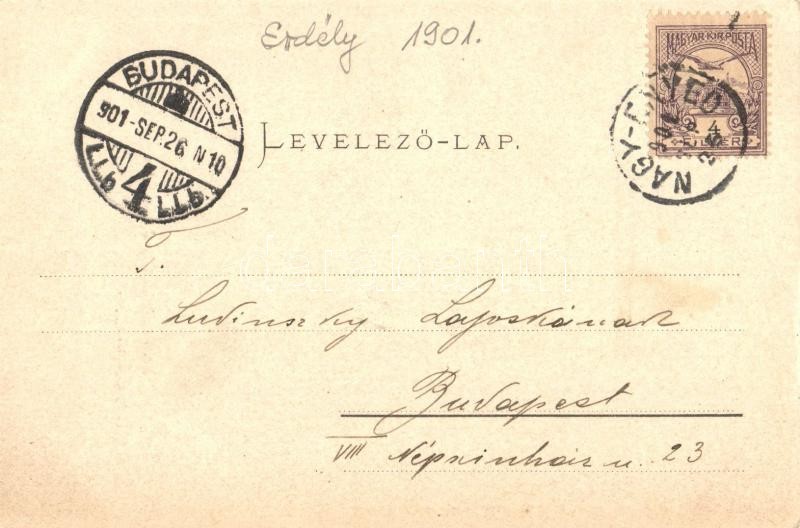 Erdély 1901.
MAGYAR KIR. POSTA
4
FILLÉR
BUDAPEST
901-SEP. 26 N 10
4
NAGY-ENYED
LEVELEZŐ-LAP.
T.
Ludinszky Lajoskának
Budapest
VIII Népszinház u. 23